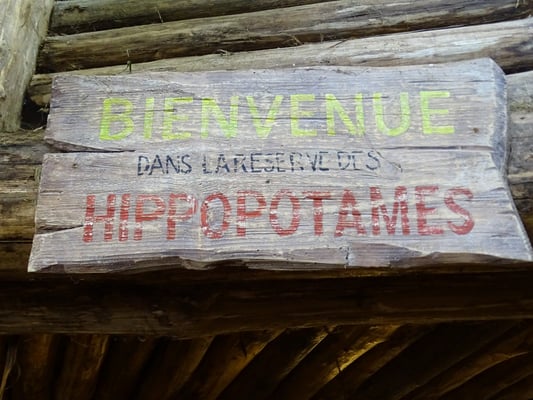 BIENVENUE
DANS LA RESERVE DES
HIPPOPOTAMES